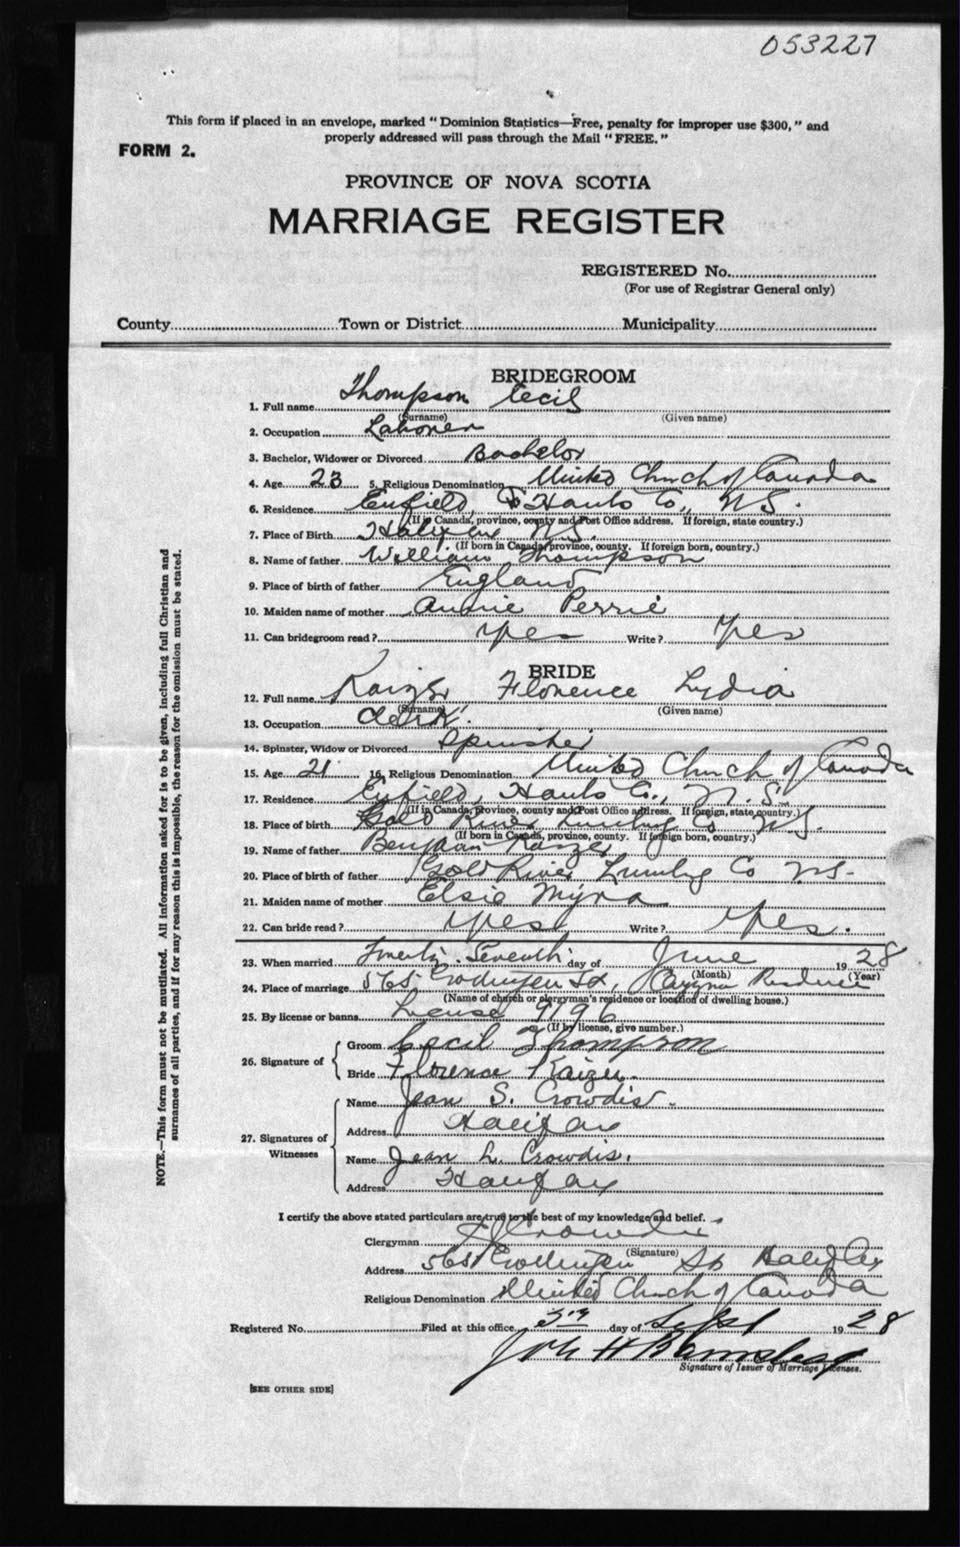 053227
This form if placed in an envelope, marked "Dominion Statistics—Free, penalty for improper use $300," and
properly addressed will pass through the Mail "FREE."
FORM 2.
PROVINCE OF NOVA SCOTIA
MARRIAGE REGISTER
REGISTERED No.
(For use of Registrar General only)
County Town or District Municipality
BRIDEGROOM
1. Full name Thompson Cecil
(Surname) (Given name)
2. Occupation Laborer
3. Bachelor, Widower or Divorced Bachelor
4. Age 23 5. Religious Denomination United Church of Canada
6. Residence Enfield, Hants Co., N.S.
(If in Canada, province, county and Post Office address. If foreign, state country.)
7. Place of Birth Halifax N.S.
(If born in Canada, province, county. If foreign born, country.)
8. Name of father William Thompson
9. Place of birth of father England
10. Maiden name of mother Annie Perrie
11. Can bridegroom read? yes Write? yes
BRIDE
12. Full name Kaizer Florence Lydia
(Surname) (Given name)
13. Occupation clerk
14. Spinster, Widow or Divorced Spinster
15. Age 21 16. Religious Denomination United Church of Canada
17. Residence Enfield, Hants Co., N.S.
(If in Canada, province, county and Post Office address. If foreign, state country.)
18. Place of birth Gold River Lunbg Co N.S.
(If born in Canada, province, county. If foreign born, country.)
19. Name of father Benjman Kaizer
20. Place of birth of father Gold River Lunbg Co N.S.
21. Maiden name of mother Elsie Myra
22. Can bride read? yes Write? yes.
23. When married Twenty Seventh day of June 1928
(Month) (Year)
24. Place of marriage St,
(Name of church or clergyman's residence or location of dwelling house.)
25. By license or banns License 9196
(If by license, give number.)
26. Signature of
Groom Cecil Thompson
Bride Florence Kaizer
27. Signatures of Witnesses
Name Jean S. Crowdis
Address Halifax
Name Jean L. Crowdis.
Address Halifax
I certify the above stated particulars are true to the best of my knowledge and belief.
Clergyman Crowdis
(Signature)
Address St Halifax
Religious Denomination United Church of Canada
Registered No. Filed at this office 3rd day of Sept 1928
H Barnstead
Signature of Issuer of Marriage Licenses.
[SEE OTHER SIDE]
NOTE.—This form must not be mutilated. All information asked for is to be given, including full Christian and
surnames of all parties, and if for any reason this is impossible, the reason for the omission must be stated.